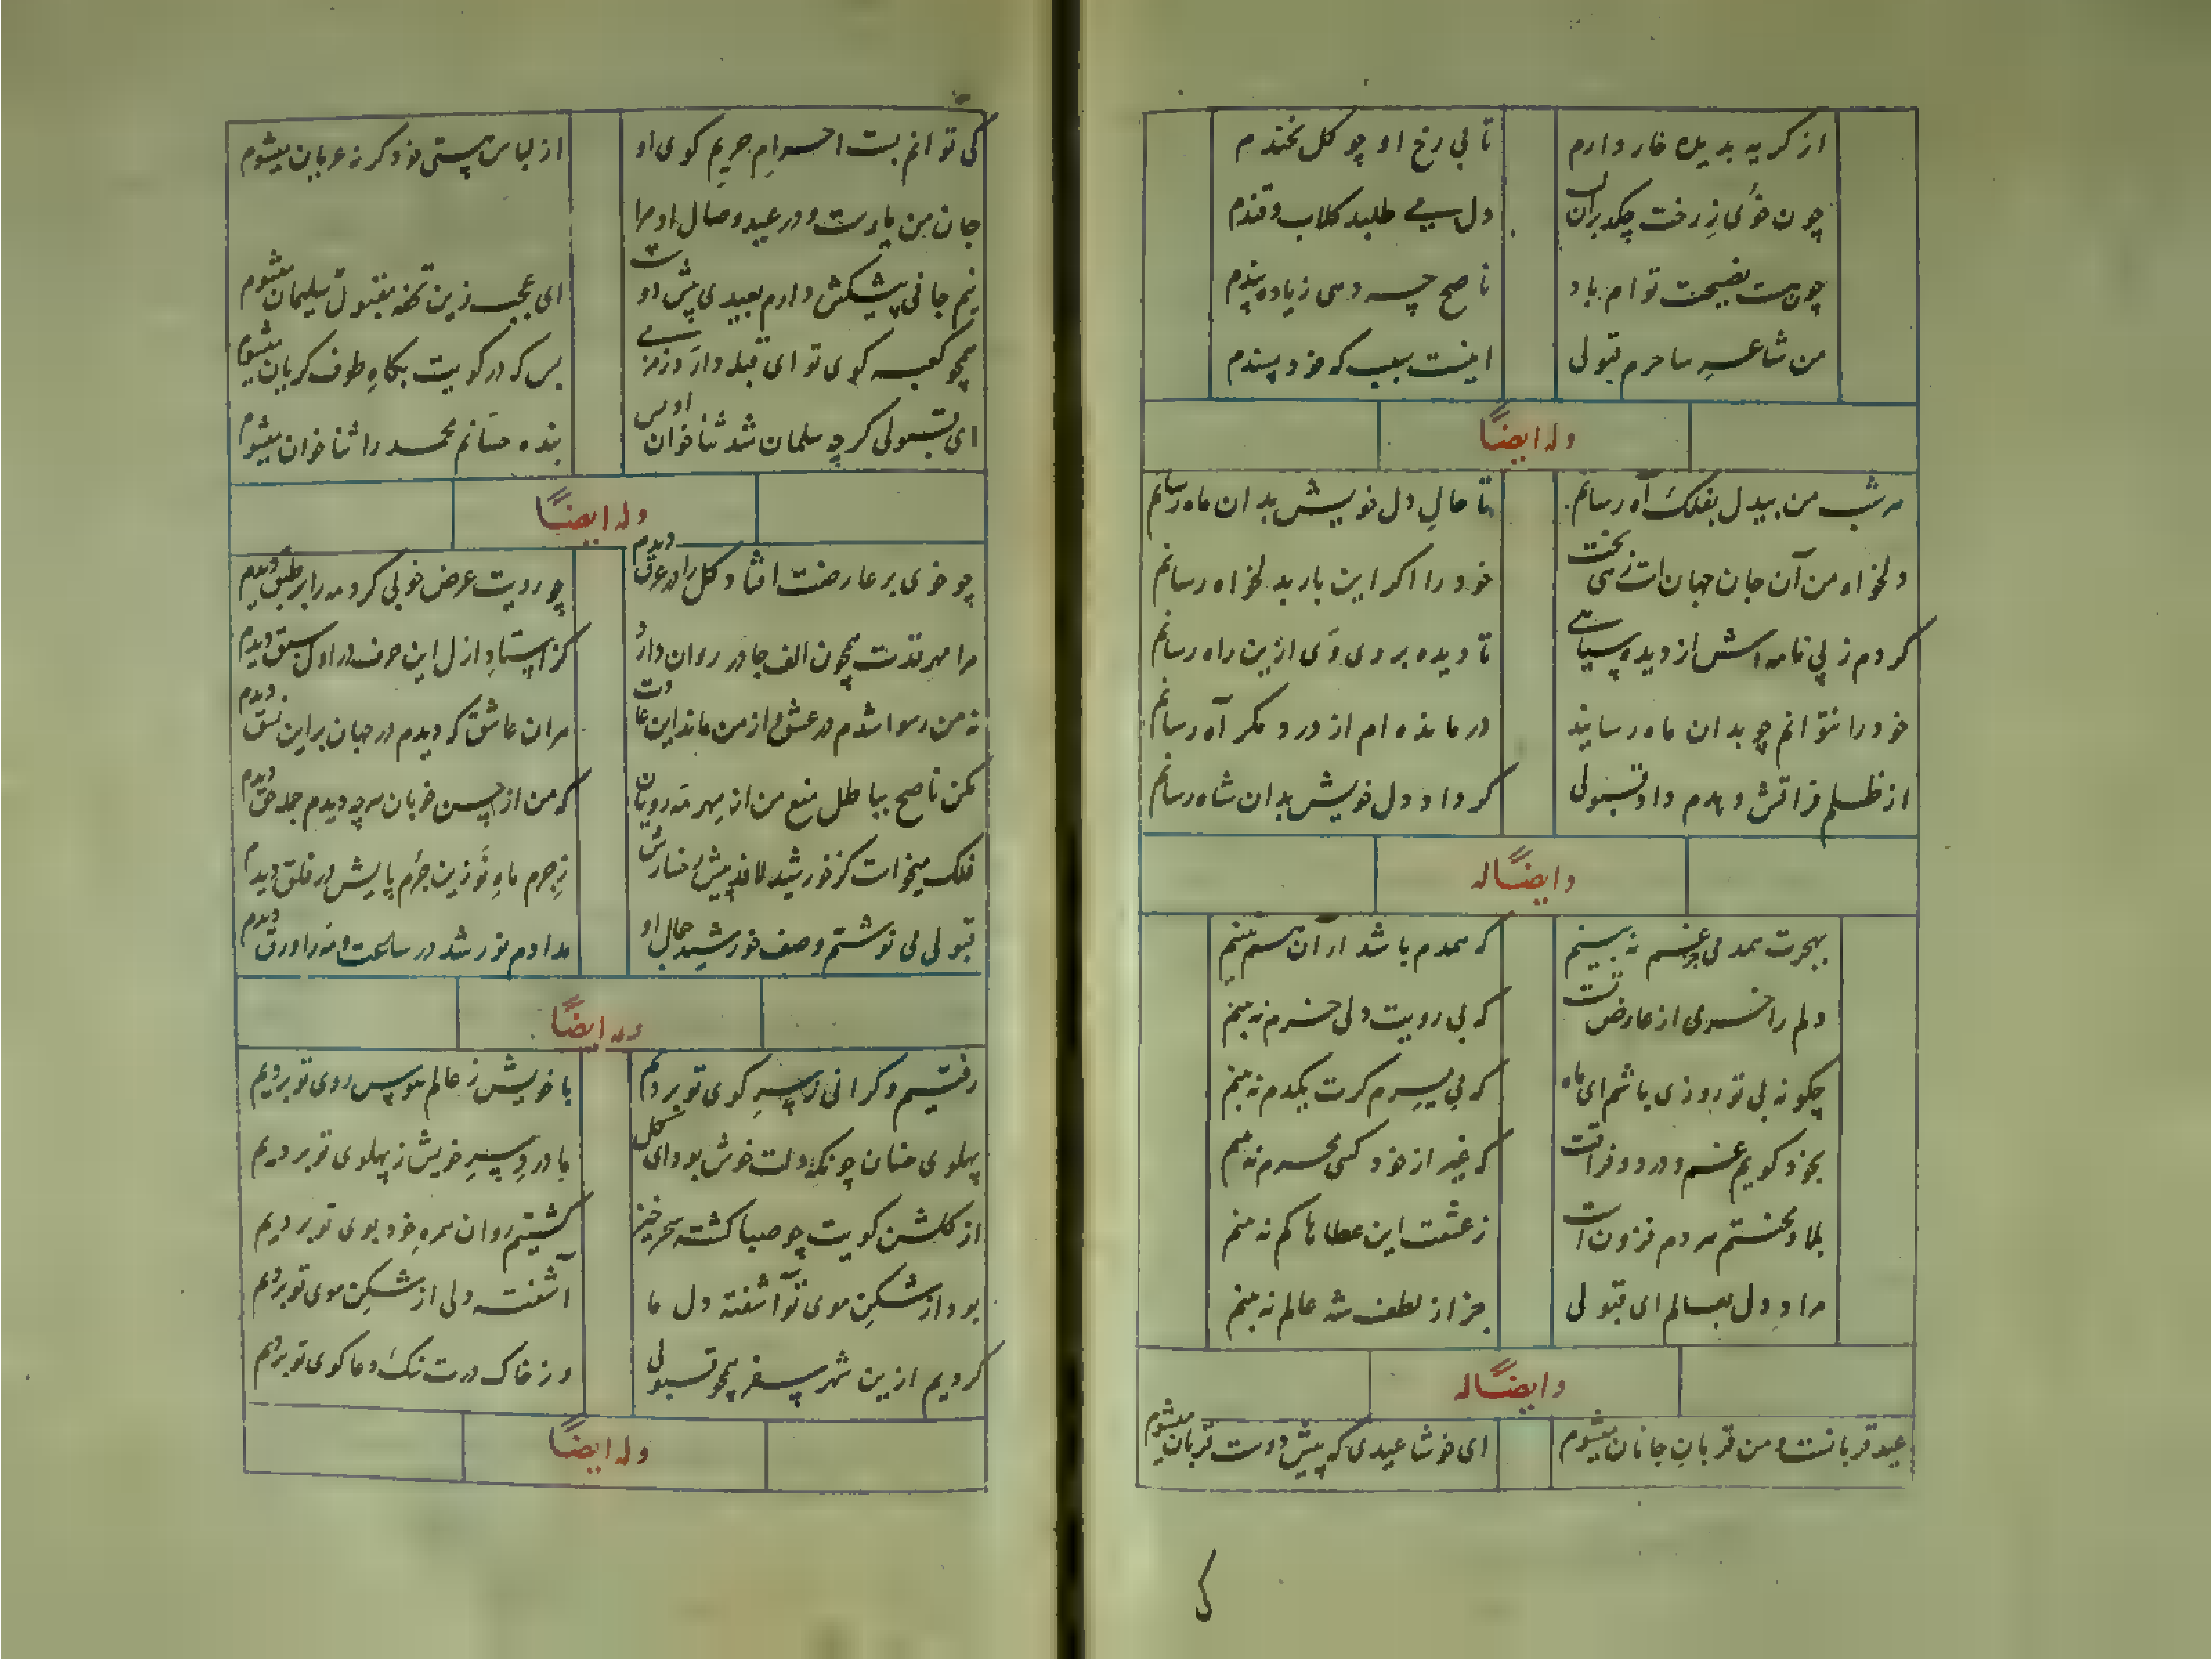 از گریه بدیده خار دارم تا بی رخ او چو گل نخندم
چون خوی ز رخت چکد بران لب دل می طلبد گلاب و قندم
چون نیست نصیحت توام یاد ناصح چه دهی زیاده پندم
من شاعر ساحرم قبولی اینست سبب که خود پسندم
وله ایضاً
هر شب من بیدل بفلک آه رسانم تا حال دل خویش بدان ماه رسانم
دلخواه من آن جان جهان است زهی بخت خود را اگر این بار بدلخواه رسانم
کردم ز پی نامه اش از دیده سیاهی تا دیده بروی وی ازین راه رسانم
خود را نتوانم چو بدان ماه رسانید درمانده ام از درد مگر آه رسانم
از ظلم فراقش دهدم داد قبولی گر داد دل خویش بدان شاه رسانم
و ایضاً له
بهجرت همدمی جز غم نه بینم که همدم باشد ار آن هم نبینم
دلم را خرمی از عارض تست که بی رویت دلی خرم نه بینم
چگونه بی تو روزی باشم ای ماه که می میرم گرت یکدم نه بینم
بخود گویم غم و درد فراقت که غیر از خود کسی محرم نه بینم
بلا و محنتم هر دم فزون است ز عشقت این عطاها کم نه بینم
مراد دل بعالم ای قبولی جز از لطف شه عالم نه بینم
و ایضاً له
عید قربانست و من قربان جانان میشوم ای خوشا عیدی که پیش دوست قربان میشوم
کی توانم بست احرام حریم کوی او از لباس هستی خود گر نه عریان میشوم
جان من یادست و در عید وصال او مرا
نیم جانی پیشکش دارم بعیدی پیش دوست ای عجب زین تحفه مقبول سلیمان میشوم
همچو کعبه کوی تو ای قبله دارد زمزمی بس که در کویت بگاه طوف گریان میشوم
ای قبولی گرچه سلمان شد ثناخوان اویس بنده حسانم محمد را ثناخوان میشوم
وله ایضاً
چو خوی بر عارضت افتاد گل را در عرق دیدم چو رویت عرض خوبی کرد مه را بر طبق دیدم
مرا مهر قدت همچون الف جا در روان دارد کز استاد ازل این حرف در اول سبق دیدم
نه من رسوا شدم در عشق و از من ماند این عادت هر ان عاشق که دیدم در جهان بر این نسق دیدم
مکن ناصح بباطل منع من از مهر مه رویان که من از حسن خوبان هرچه دیدم جمله حق دیدم
فلک میخواست کز خورشید لافد پیش رخسارش ز جرم ماه نو زین جرم پایش در فلق دیدم
قبولی می نوشتم وصف خورشید جمال او مدادم نور شد در ساعت و مه را ورق دیدم
وله ایضاً
رفتیم و گرانی ز سر کوی تو بردیم با خویش ز عالم هوس روی تو بردیم
پهلوی خسان چونکه دلت خوش بود ای گل با درد سر خویش ز پهلوی تو بردیم
از گلشن کویت چو صبا گشته سحرخیز گشتیم روان همره خود بوی تو بردیم
بود از شکن موی تو آشفته دل ما آشفته دلی از شکن موی تو بردیم
کردیم ازین شهر سفر همچو قبولی وز خاک درت ننگ دعاگوی تو بردیم
وله ایضاً